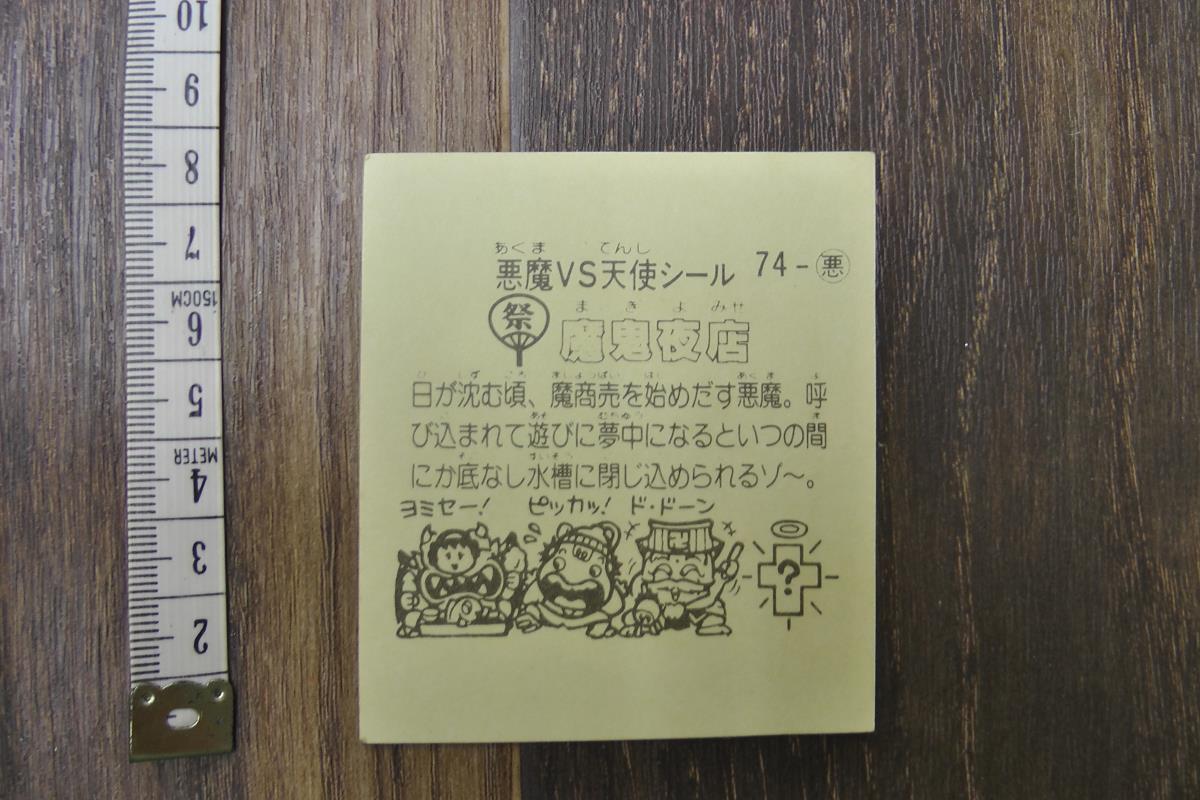 あくま てんし
悪魔VSを天使シール 74-悪
祭
まきよみせ
魔鬼夜店
日が沈む頃、魔商売を始めだす悪魔。呼
び込まれて遊びに夢中になるといつの間
にか底なし水槽に閉じ込められるゾ～。
ヨミセー! ピッカッ! ド・ドーン
?
10
9
8
7
150CM
6
5
METER
4
3
2